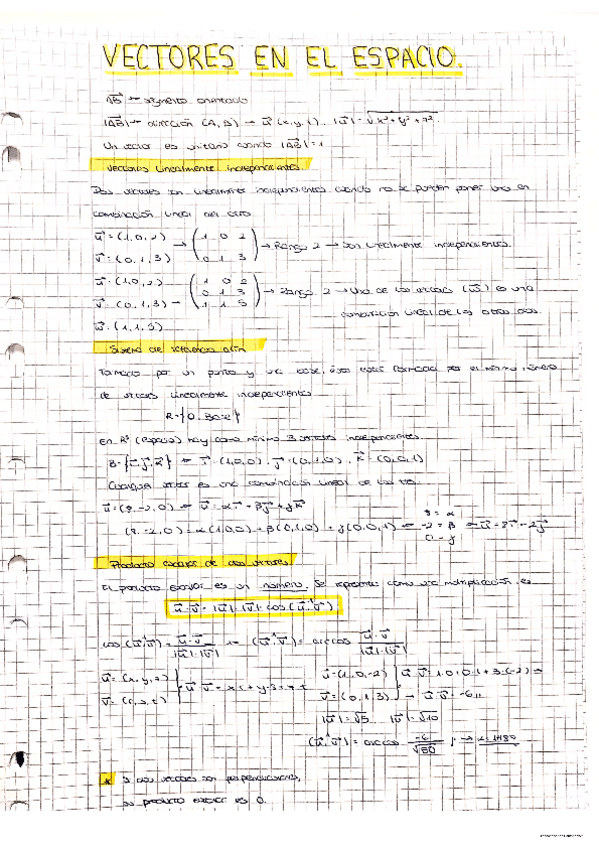 VECTORES EN EL ESPACIO.
AB → segmento orientado
|AB| → dirección (A, B) → u (x, y, z). |u| = √x²+y²+z².
Un vector es unitario cuando |AB| = 1
Vectores Linealmente independientes.
Dos vectores son linealmente independientes cuando no se pueden poner uno en
combinación lineal del otro
u = (1, 0, 2) → ( 1 0 2 ) → Rango 2 → Son Linealmente independientes.
v = (0, 1, 3) 0 1 3
u = (1, 0, 2) ( 1 0 2
v = (0, 1, 3) → 0 1 3 ) → Rango 2 → Uno de los vectores (w) es una
combinación lineal de los otros dos.
w = (1, 1, 5)
Sistema de referencia afín
Formado por un punto y una base, formada por el mínimo número
de vectores linealmente independientes
R = {0, Base}
En R³ (Espacio) hay como mínimo 3 vectores independientes.
B = {i, j, k} i = (1,0,0), j = (0,1,0), k = (0,0,1)
Cualquier vector es una combinación lineal de
u = (8, -2, 0) u = αi + βj + γk
(8, -2, 0) = α(1,0,0) + β(0,1,0) + γ(0,0,1) 8 = α -2 = β 0 = γ u = 8i - 2j
Producto escalar de dos vectores
El producto escalar es un número. Se representa como una multiplicación, es
u · v = |u| · |v| · cos (u, v)
cos (u, v) = u · v / |u| · |v| → (u, v) = arccos u · v / |u| · |v|
u = (x, y, z) u = (1, 0, -2) u · v = 1·0+0·1+3·(-2) =
v = (r, s, t) u · v = x·r + y·s + z·t v = (0, 1, 3) → u · v = -6
|u| = √5 |v| = √10
(u, v) = arccos -6 / √50
* Si dos vectores son perpendiculares,
su producto escalar es 0.